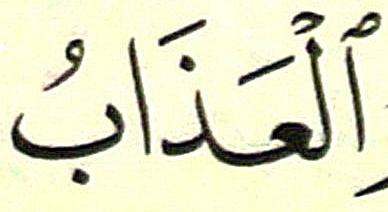 ٱلْعَذَابُ